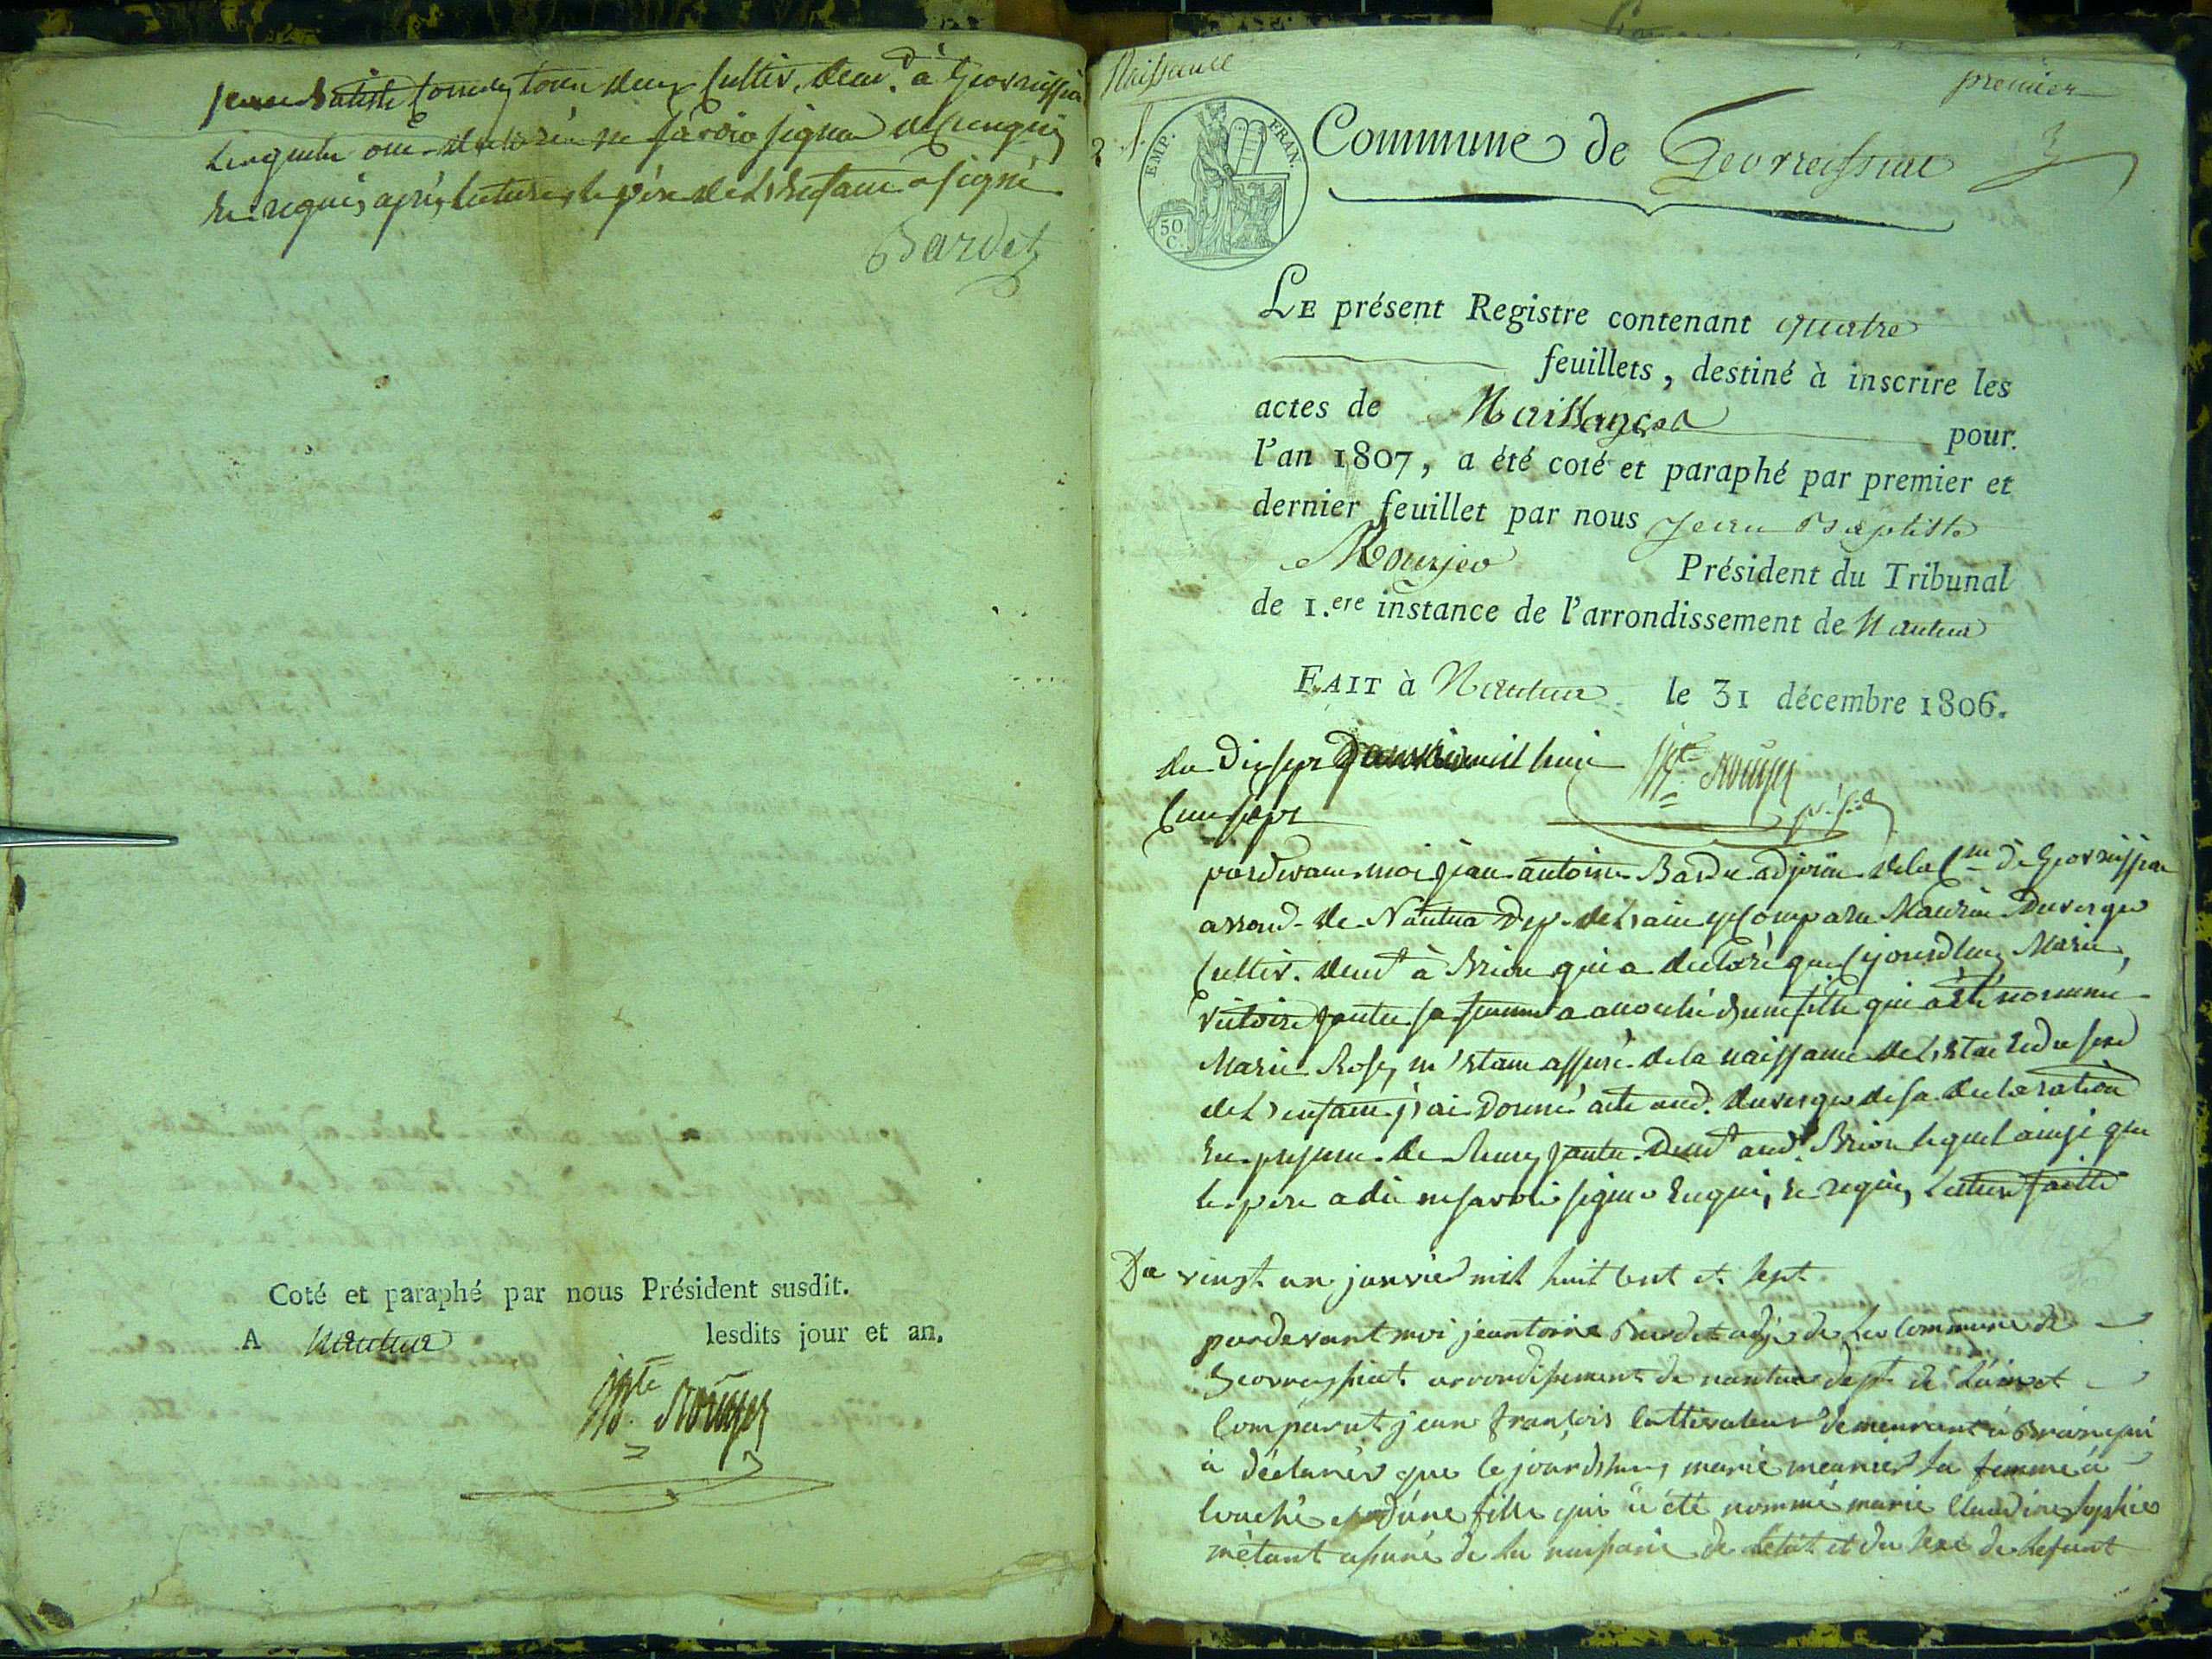 jean Batiste tous deux Cultiv. dem.t à Georeissia
lesquels ont declaré ne savoir signer de ce enquis
et requis, après lecture, le père de L'enfant a signé
Bardet
Coté et paraphé par nous Président susdit.
A Nantua lesdits jour et an.
Jn Bte Rouyer
Naissance
premier
EMP. FRAN.
50 C.
Commune de Georreissiat
LE présent Registre contenant quatre
feuillets, destiné à inscrire les
actes de Naissances pour
l'an 1807, a été coté et paraphé par premier et
dernier feuillet par nous Jean Baptiste
Rouyer Président du Tribunal
de 1.ere instance de l'arrondissement de Nantua
FAIT à Nantua le 31 décembre 1806.
du Dix sept Janvier mil huit
Cent sept
Jn Bte Rouyer
pardevant moi jean antoine Bardet adjoint de la Cne de Georreissiat
arrond. de Nantua Dep. de L'ain est Comparu Maurice Duverger
Cultiv. demt à Brion qui a declaré que Cejourd'huy Marie
victoire sa femme a accouché d'une fille qui a été nommée
Marie Rose, m'etant assuré de la naissance de L'etat et du sexe
de L'enfant j'ai donné acte aud. duverger de sa declaration
En presence de demt aud. Brion lequel ainsi que
le pere a dit ne savoir signer Enquis, et requis, Lecture faitte
Du vingt un janvier mil huit Cent et sept
pardevant moi jeantoine Bardet adj. de La Commune de
Georreyssiat arrondissement de nantua dept. de L'ain est
Comparut jean françois Cultivateur demeurant à Brion qui
à déclarer que Cejourd'huy marie meunier sa femme à
Couché d'une fille qui à été nommé marie Claudine sophie
m'étant assuré de la naissance de L'état et du sexe de Lefant